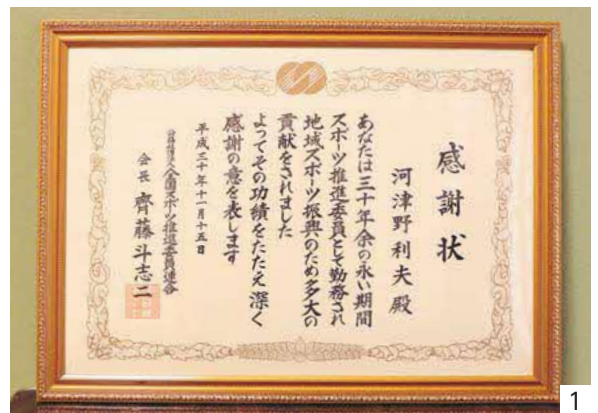 感謝状
河津野利夫殿
あなたは三十年余の永い期間
スポーツ推進委員として勤務され
地域スポーツ振興のため多大の
貢献をされました
よってその功績をたたえ深く
感謝の意を表します
平成三十年十一月十五日
公益社団法人全国スポーツ推進委員連合
会長 齊藤斗志二
1